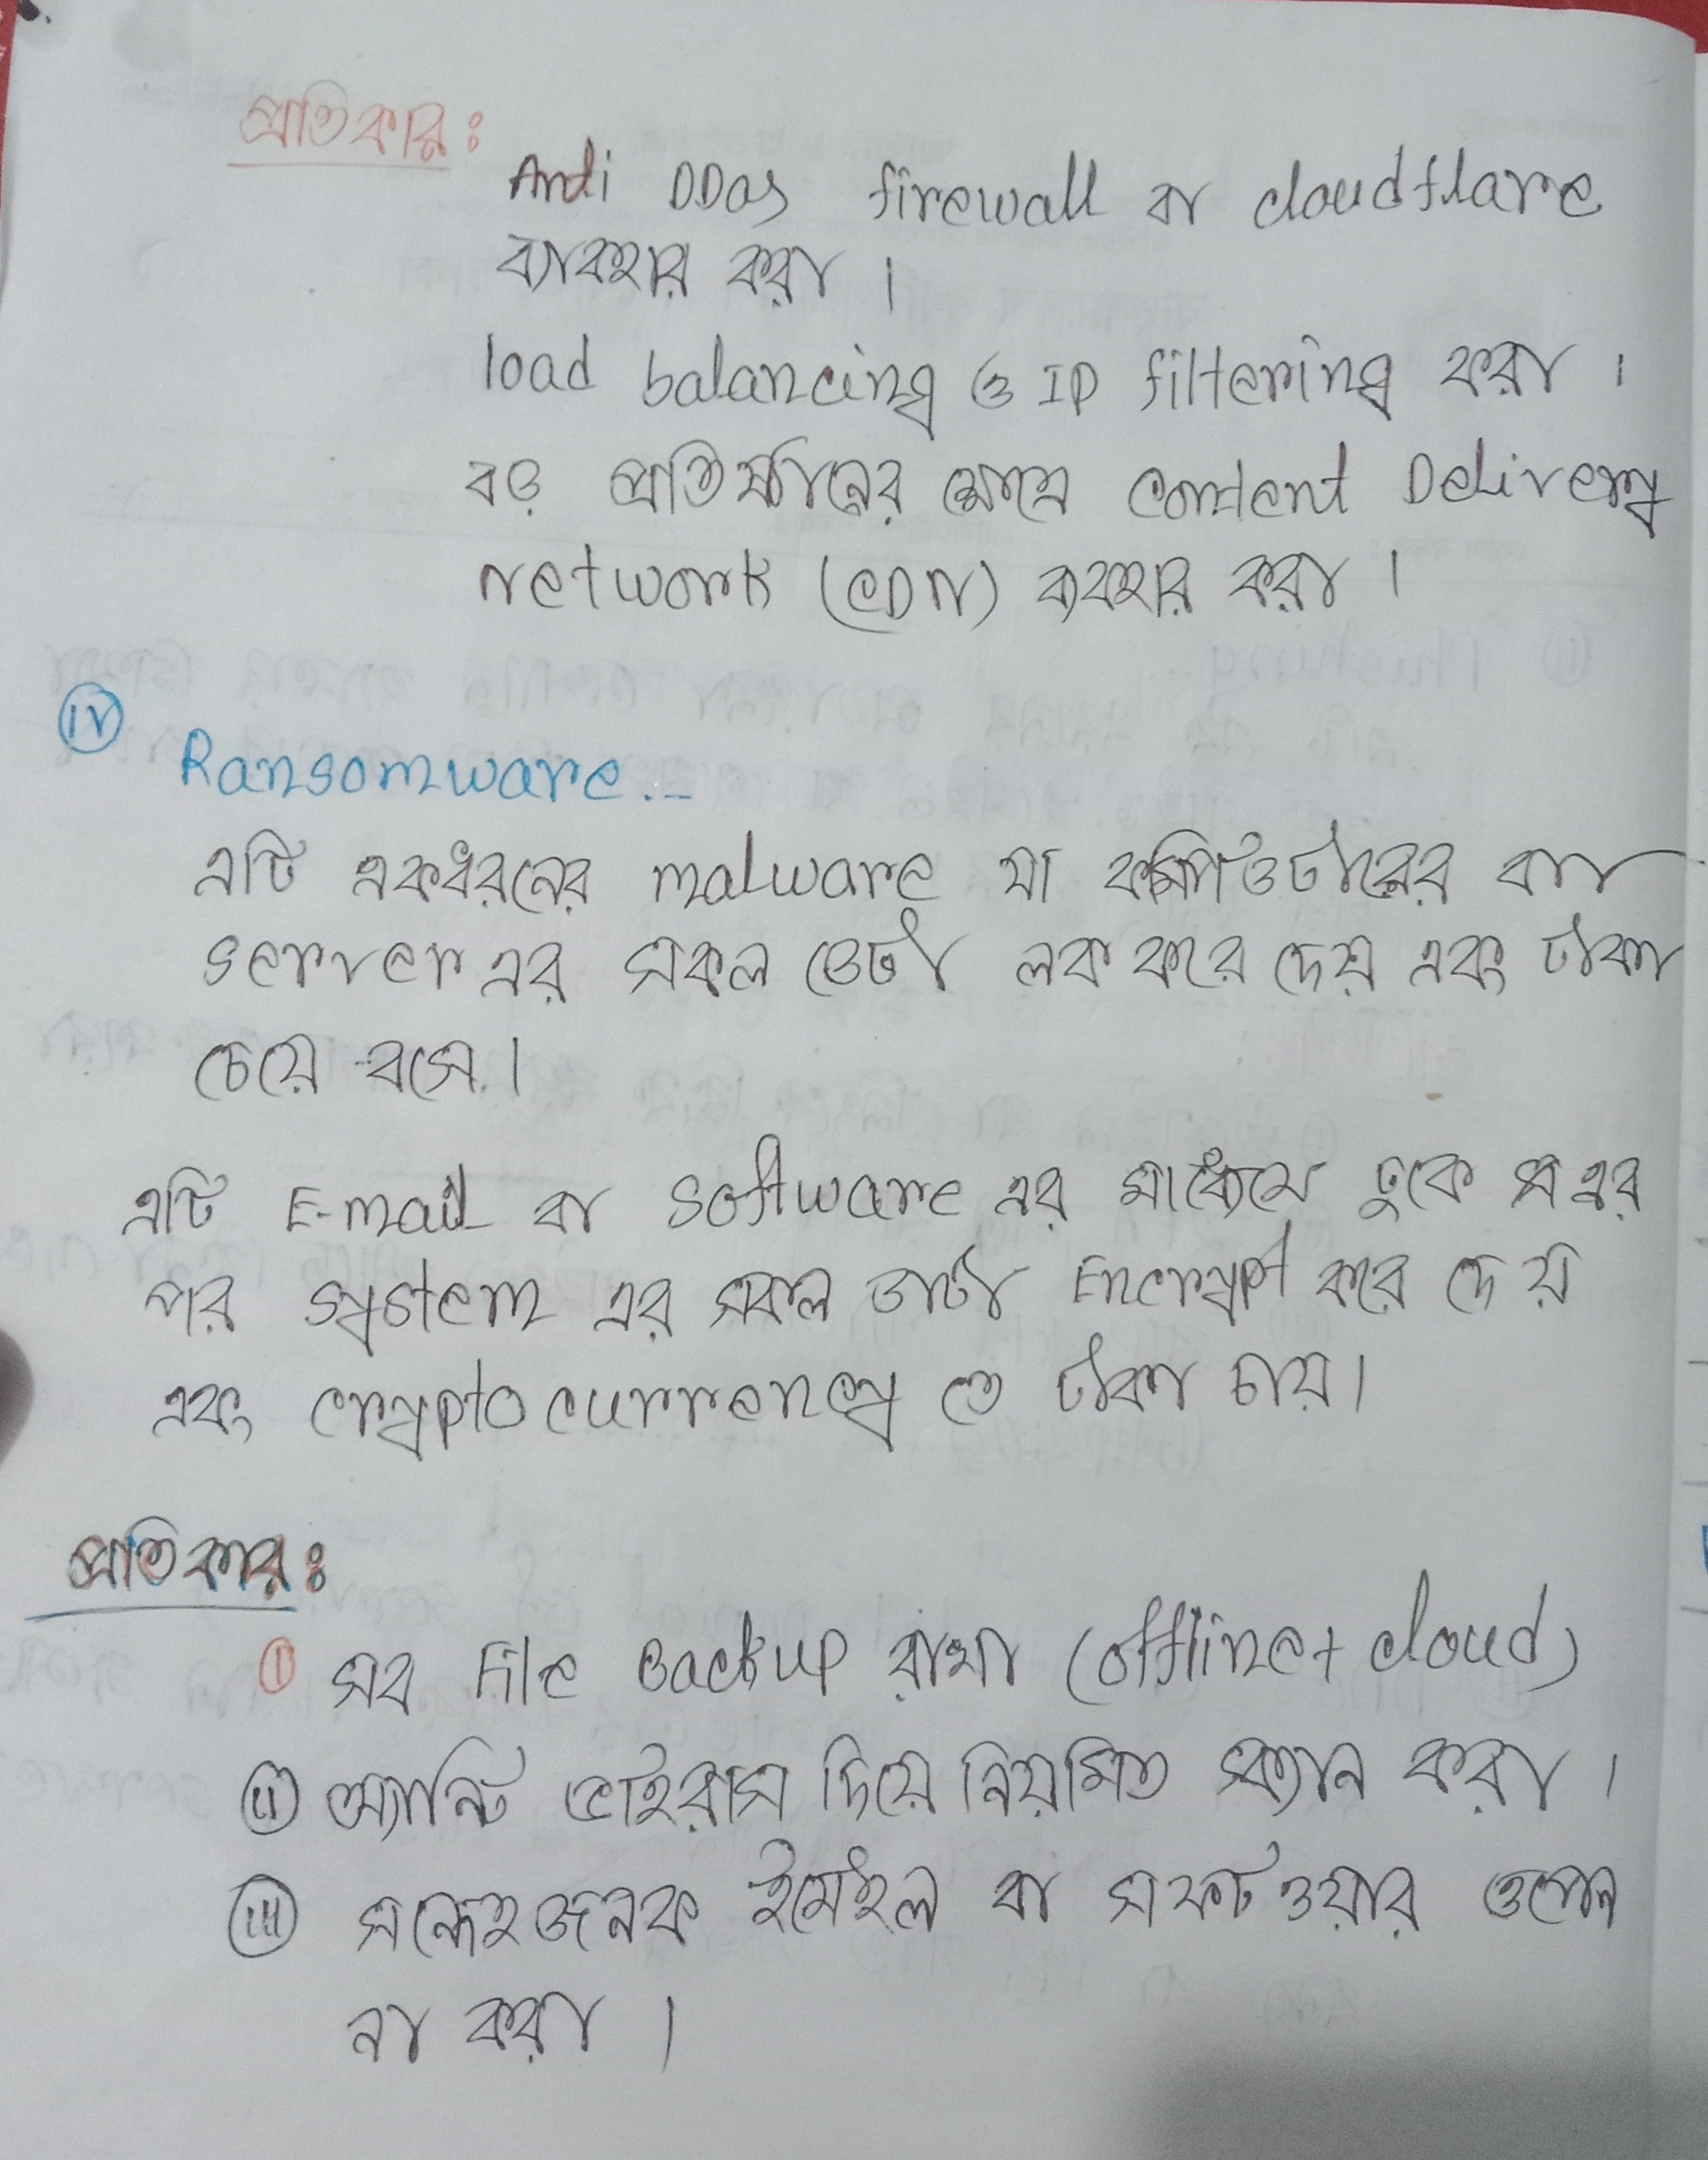 প্রতিকার:
Anti DDos firewall বা cloudflare
ব্যাবহার করা ।
load balancing ও IP filtering করা ।
বড় প্রতিষ্ঠানের ক্ষেত্রে content Delivery
network (CDN) ব্যবহার করা ।
iv
Ransomware..
এটি একধরনের malware যা কম্পিউটারের বা
server এর সকল ডেটা লক করে দেয় এবং টাকা
চেয়ে বসে ।
এটি E-mail বা software এর মাধ্যেমে ঢুকে এর
পর system এর সকল ডাটা Encrypt করে দেয়
এবং cryptocurrency তে টাকা চায় ।
প্রতিকার:
i সব File Backup রাখা (offline + cloud)
ii অ্যান্টি ভাইরাস দিয়ে নিয়মিত স্ক্যান করা ।
iii সন্দেহজনক ইমেইল বা সফটওয়ার ওপেন
না করা ।